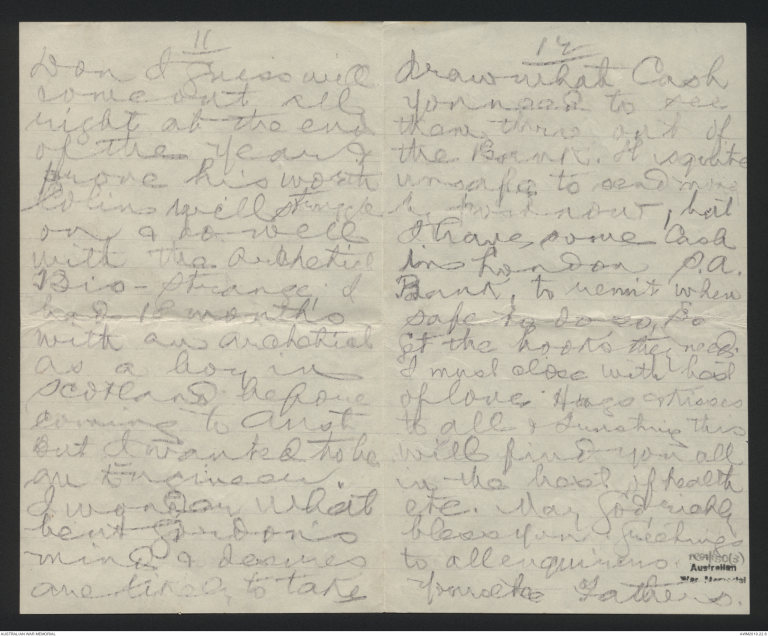 11
Don I guess will
come out all
right at the end
of the year &
prove his worth
Colins will struggle
on & do well
with the Architect
Biz - strange I
had 18 months
with an architect
as a boy in
Scotland before
coming to Aust
But I wanted to be
an Engineer.
I wonder what
bent Gordon's
mind & desires
are likely to take
12
draw what Cash
you need to see
them thro out of
the Bank. It is quite
unsafe to send more
now, but
I have some Cash
in London S.A.
Bank, to remit when
safe to do so, So
get the books they need.
I must close with best
of love Hugs & Kisses
to all & trusting this
will find you all
in the best of health
etc. May God richly
bless you. Greetings
to all enquirers.
Yours etc Father S.
Australian
War Memorial
AUSTRALIAN WAR MEMORIAL